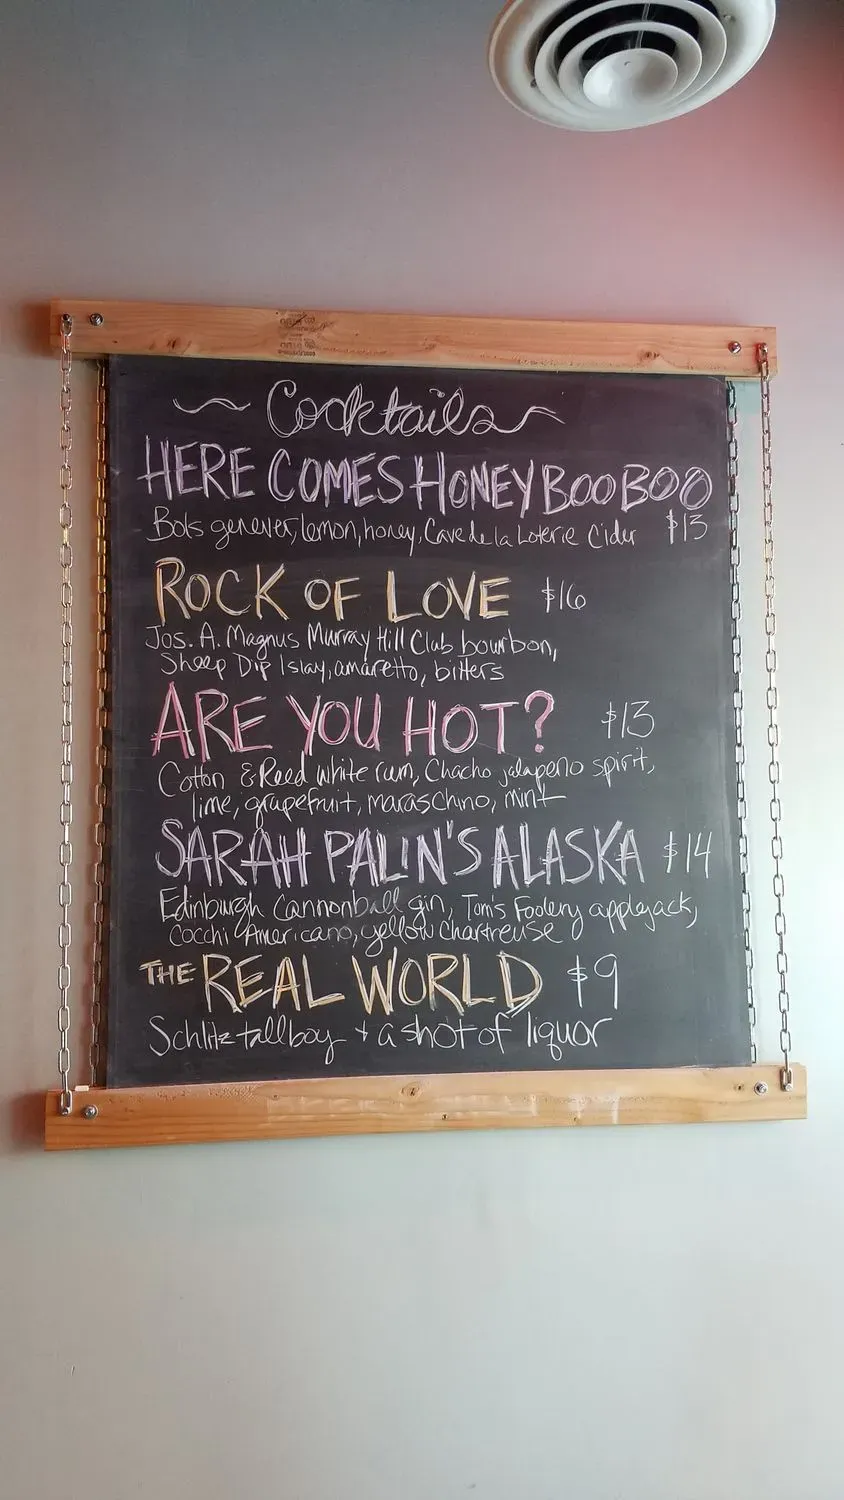 Cocktails
HERE COMES HONEY BOO BOO
Bols genever, lemon, honey, Cave de la Loterie Cider $13
ROCK OF LOVE $16
Jos. A. Magnus Murray Hill Club bourbon,
Sheep Dip Islay, amaretto, bitters
ARE YOU HOT? $13
Cotton & Reed white rum, Chacho jalapeno spirit,
lime, grapefruit, maraschino, mint
SARAH PALIN'S ALASKA $14
Edinburgh Cannonball gin, Tom's Foolery applejack,
Cocchi Americano, yellow Chartreuse
THE REAL WORLD $9
Schlitz tallboy + a shot of liquor